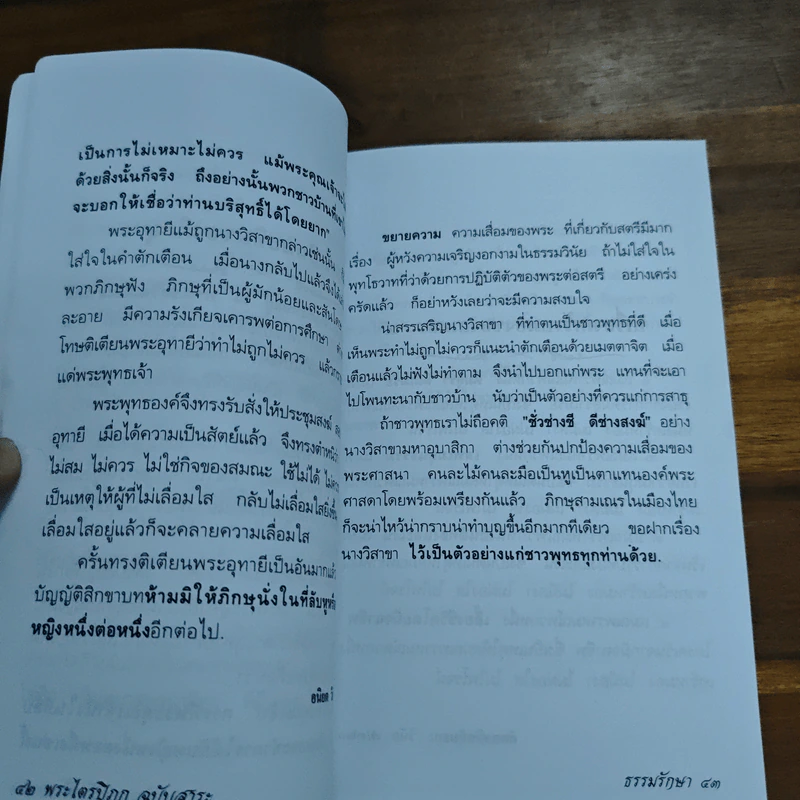 เป็นการไม่เหมาะไม่ควร แม้พระคุณเจ้าจะ
ด้วยสิ่งนั้นก็จริง ถึงอย่างนั้นพวกชาวบ้านที่
จะบอกให้เชื่อว่าท่านบริสุทธิ์ได้โดยยาก"
พระอุทายีแม้ถูกนางวิสาขากล่าวเช่นนั้น
ใส่ใจในคำตักเตือน เมื่อนางกลับไปแล้วจึง
พวกภิกษุฟัง ภิกษุที่เป็นผู้มักน้อยและสันโดษ
ละอาย มีความรังเกียจเคารพต่อการศึกษา
โทษติเตียนพระอุทายีว่าทำไม่ถูกไม่ควร แล้ว
แด่พระพุทธเจ้า
พระพุทธองค์จึงทรงรับสั่งให้ประชุมสงฆ์
อุทายี เมื่อได้ความเป็นสัตย์แล้ว จึงทรงตำหนิ
ไม่สม ไม่ควร ไม่ใช่กิจของสมณะ ใช้ไม่ได้ ไม่ควร
เป็นเหตุให้ผู้ที่ไม่เลื่อมใส กลับไม่เลื่อมใสยิ่งขึ้น
เลื่อมใสอยู่แล้วก็จะคลายความเลื่อมใส
ครั้นทรงติเตียนพระอุทายีเป็นอันมากแล้ว
บัญญัติสิกขาบทห้ามมิให้ภิกษุนั่งในที่ลับหูหรือ
หญิงหนึ่งต่อหนึ่งอีกต่อไป.
อนิยต
๔๒ พระไตรปิฎก ฉบับสาระ
ขยายความ ความเสื่อมของพระ ที่เกี่ยวกับสตรีมีมาก
เรื่อง ผู้หวังความเจริญงอกงามในธรรมวินัย ถ้าไม่ใส่ใจใน
พุทโธวาทที่ว่าด้วยการปฏิบัติตัวของพระต่อสตรี อย่างเคร่ง
ครัดแล้ว ก็อย่าหวังเลยว่าจะมีความสงบใจ
น่าสรรเสริญนางวิสาขา ที่ทำตนเป็นชาวพุทธที่ดี เมื่อ
เห็นพระทำไม่ถูกไม่ควรก็แนะนำตักเตือนด้วยเมตตาจิต เมื่อ
เตือนแล้วไม่ฟังไม่ทำตาม จึงนำไปบอกแก่พระ แทนที่จะเอา
ไปโพนทะนากับชาวบ้าน นับว่าเป็นตัวอย่างที่ควรแก่การสาธุ
ถ้าชาวพุทธเราไม่ถือคติ "ชั่วช่างชี ดีช่างสงฆ์" อย่าง
นางวิสาขามหาอุบาสิกา ต่างช่วยกันปกป้องความเสื่อมของ
พระศาสนา คนละไม้คนละมือเป็นหูเป็นตาแทนองค์พระ
ศาสดาโดยพร้อมเพรียงกันแล้ว ภิกษุสามเณรในเมืองไทย
ก็จะน่าไหว้น่ากราบน่าทำบุญขึ้นอีกมากทีเดียว ขอฝากเรื่อง
นางวิสาขา ไว้เป็นตัวอย่างแก่ชาวพุทธทุกท่านด้วย.
ธรรมรักษา ๔๓